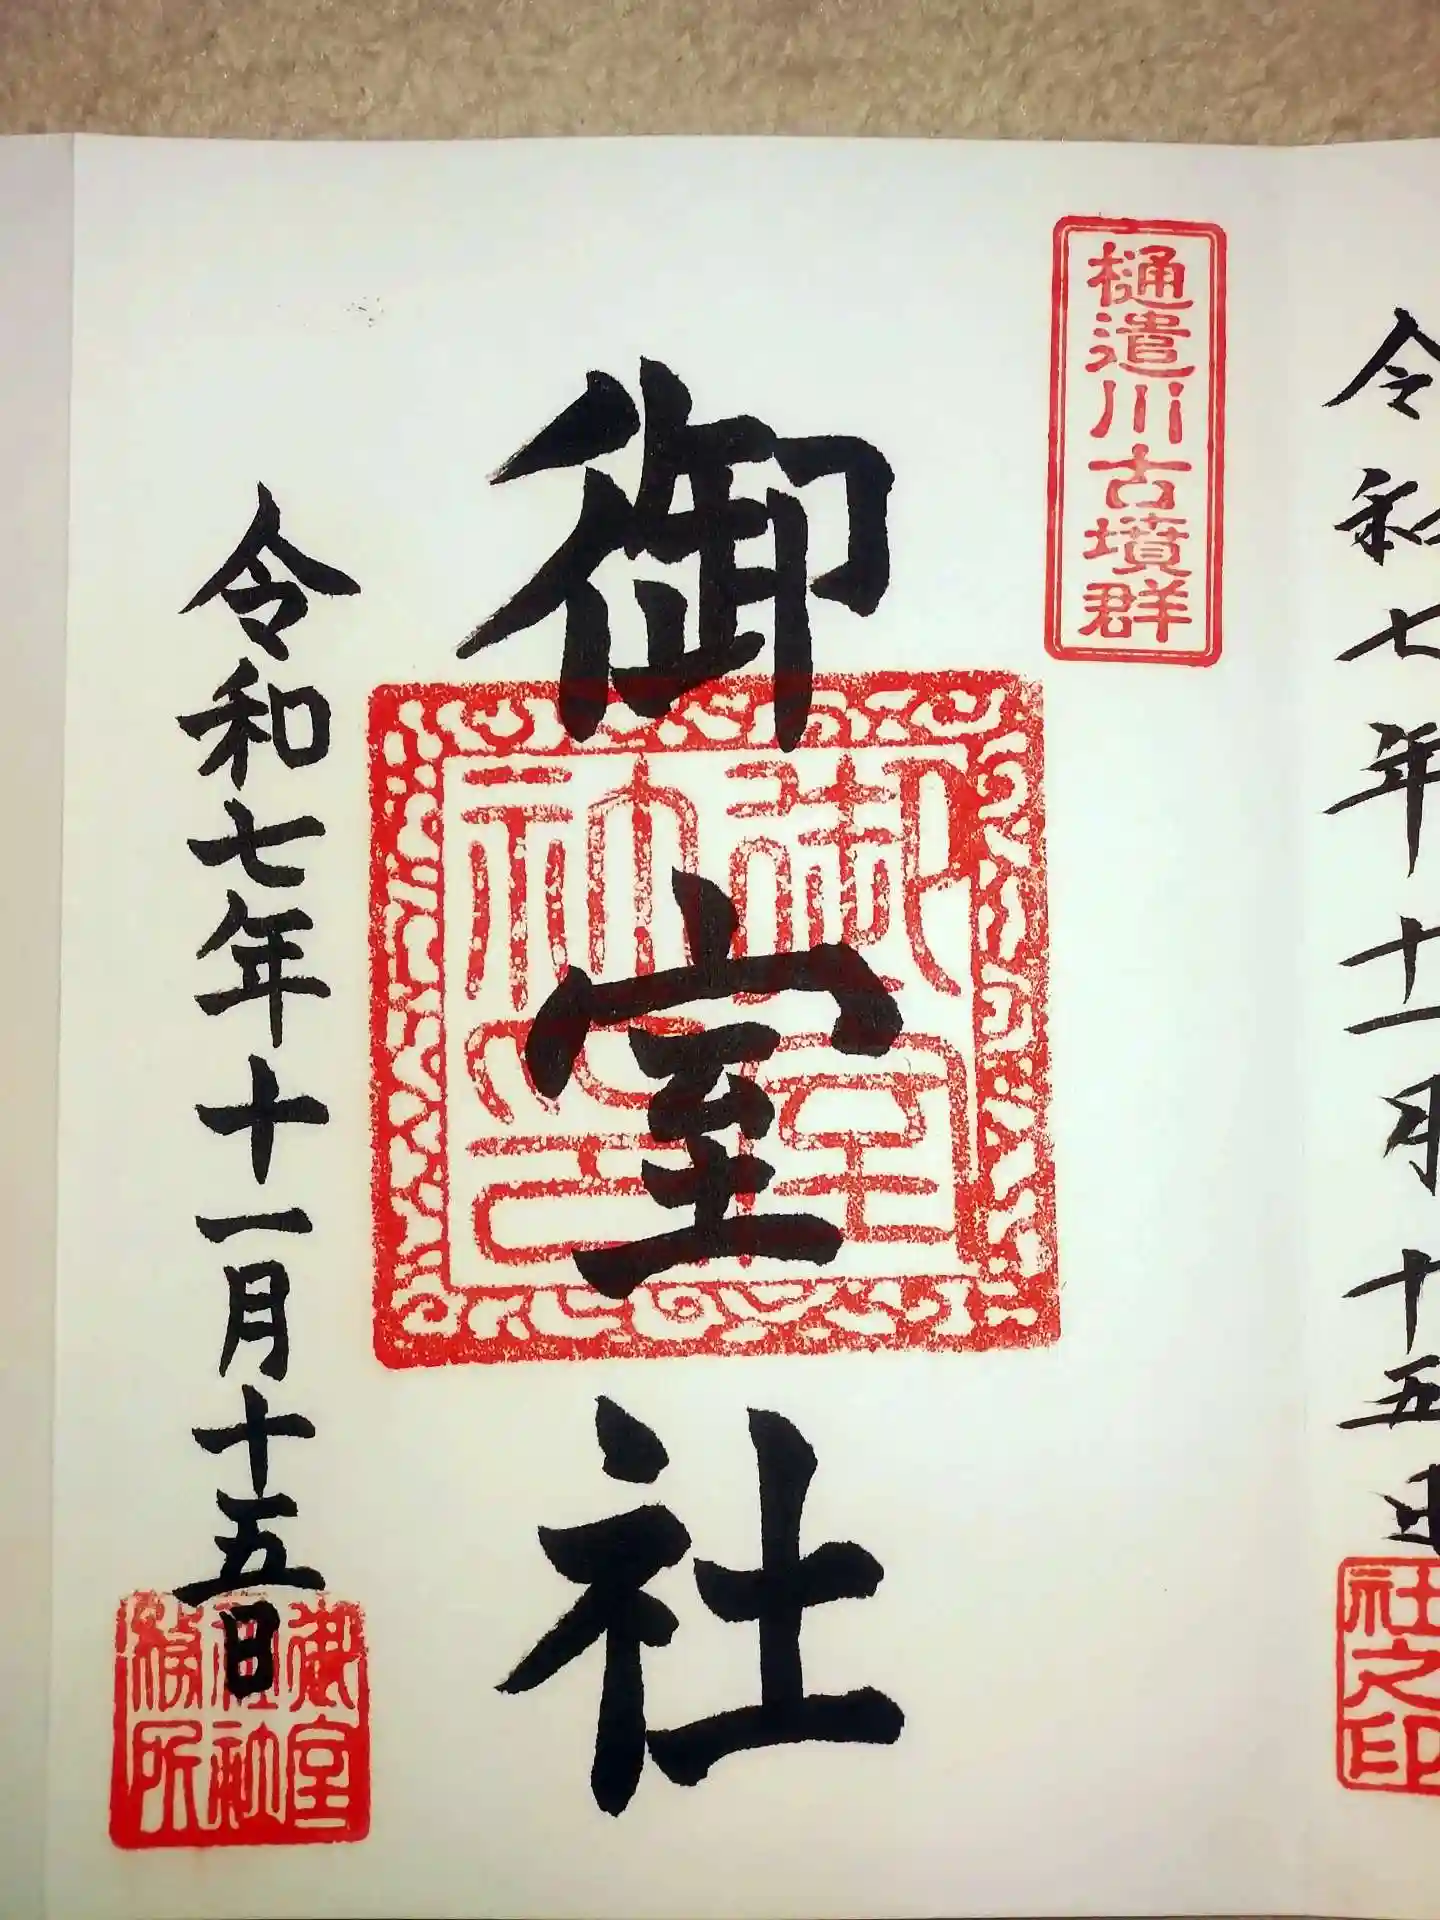 令和七年十一月十五日
社之印
樋遣川古墳群
御室社
御室
社印
令和七年十一月十五日
御室
神社
務所